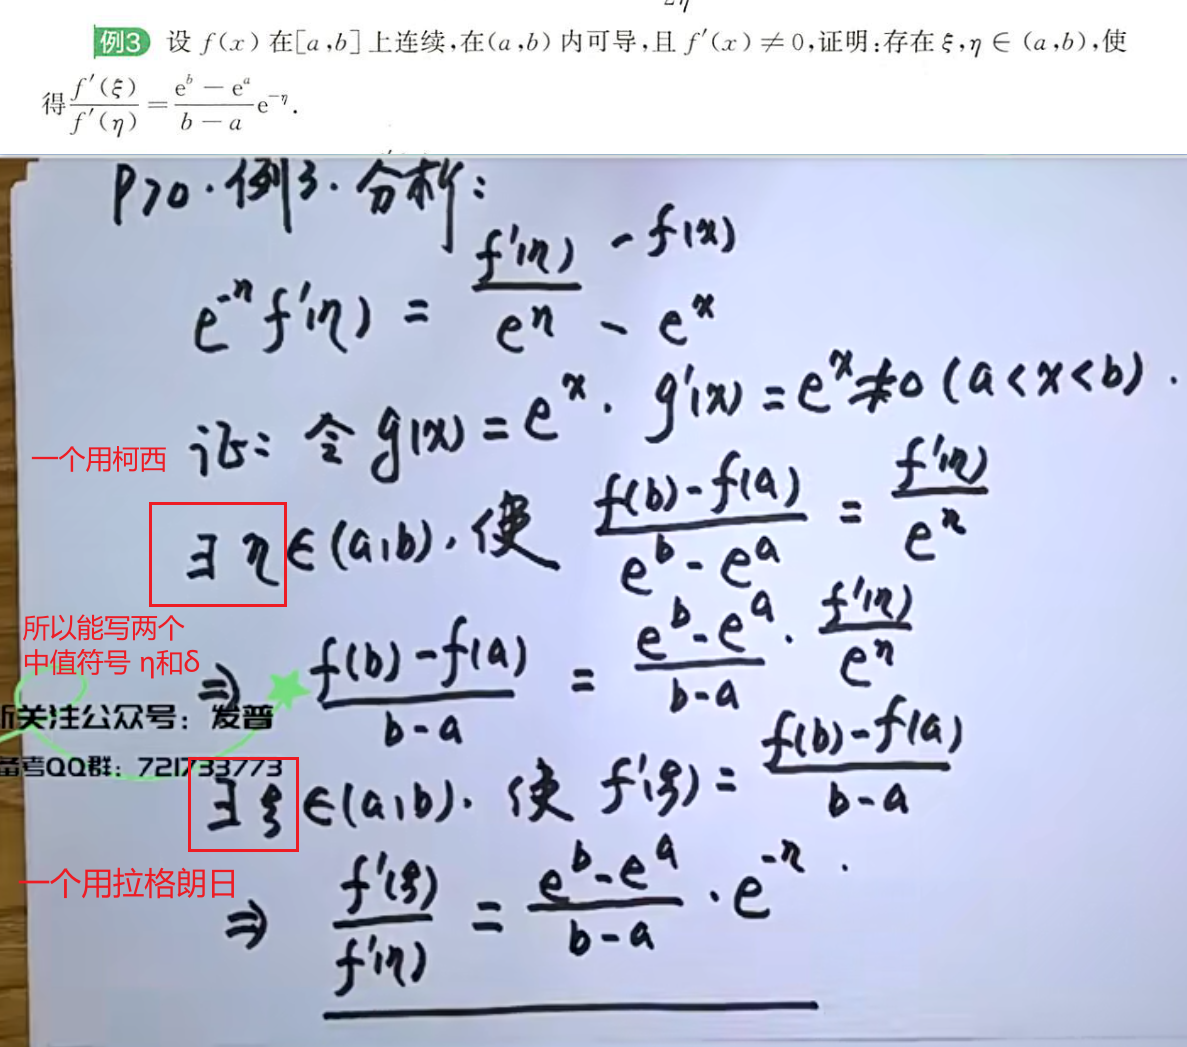 例3 设 f(x) 在[a,b]上连续,在(a,b)内可导,且 f′(x)≠0,证明:存在 ξ,η∈(a,b),使
得 f′(ξ)/f′(η) = (e^b − e^a)/(b − a) e^{−η}.
P70.例3.分析:
e^{-η}f′(η) = f′(η)/e^η − f(x) − e^x
证: 令 g(x)=e^x. g′(x)=e^x≠0 (a<x<b).
一个用柯西
∃ η∈(a,b).使 (f(b)-f(a))/(e^b-e^a) = f′(η)/e^η
所以能写两个
中值符号 η和δ
⇒ (f(b)-f(a))/(b-a) = (e^b-e^a)/(b-a) · f′(η)/e^η
关注公众号：发普
备考QQ群：721733773
∃ ξ∈(a,b). 使 f′(ξ) = (f(b)-f(a))/(b-a)
一个用拉格朗日
⇒ f′(ξ)/f′(η) = (e^b-e^a)/(b-a) · e^{-η}.